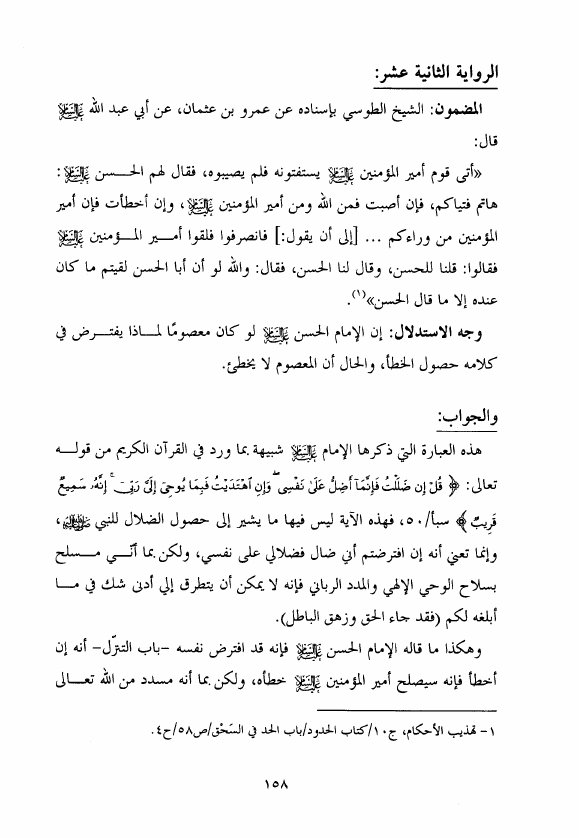 الرواية الثانية عشر:
المضمون: الشيخ الطوسي بإسناده عن عمرو بن عثمان، عن أبي عبد الله عليه السلام
قال:
«أتى قوم أمير المؤمنين عليه السلام يستفتونه فلم يصيبوه، فقال لهم الحـــسن عليه السلام:
هاتم فتياكم، فإن أصبت فمن الله ومن أمير المؤمنين عليه السلام، وإن أخطأت فإن أمير
المؤمنين من وراءكم ... [إلى أن يقول:] فانصرفوا فلقوا أمـــير المـــؤمنين عليه السلام
فقالوا: قلنا للحسن، وقال لنا الحسن، فقال: والله لو أن أبا الحسن لقيتم ما كان
عنده إلا ما قال الحسن»(١).
وجه الاستدلال: إن الإمام الحسن عليه السلام لو كان معصومًا لمـــاذا يفتـــرض في
كلامه حصول الخطأ، والحال أن المعصوم لا يخطئ.
والجواب:
هذه العبارة التي ذكرها الإمام عليه السلام شبيهة بما ورد في القرآن الكريم من قولـــه
تعالى: ﴿قُلْ إِن ضَلَلْتُ فَإِنَّمَآ أَضِلُّ عَلَىٰ نَفْسِى ۖ وَإِنِ ٱهْتَدَيْتُ فَبِمَا يُوحِىٓ إِلَىَّ رَبِّىٓ ۚ إِنَّهُۥ سَمِيعٌ
قَرِيبٌ﴾ سبأ/٥٠، فهذه الآية ليس فيها ما يشير إلى حصول الضلال للنبي صلى الله عليه وآله،
وإنما تعني أنه إن افترضتم أني ضال فضلالي على نفسي، ولكن بما أنّـــي مـــسلح
بسلاح الوحي الإلهي والمدد الرباني فإنه لا يمكن أن يتطرق إلي أدنى شك في مـــا
أبلغه لكم (فقد جاء الحق وزهق الباطل).
وهكذا ما قاله الإمام الحسن عليه السلام فإنه قد افترض نفسه -باب التنزّل- أنه إن
أخطأ فإنه سيصلح أمير المؤمنين عليه السلام خطأه، ولكن بما أنه مسدد من الله تعـــالى
١- تهذيب الأحكام، ج١٠/كتاب الحدود/باب الحد في السَحْق/ص٥٨/ح٤.
١٥٨